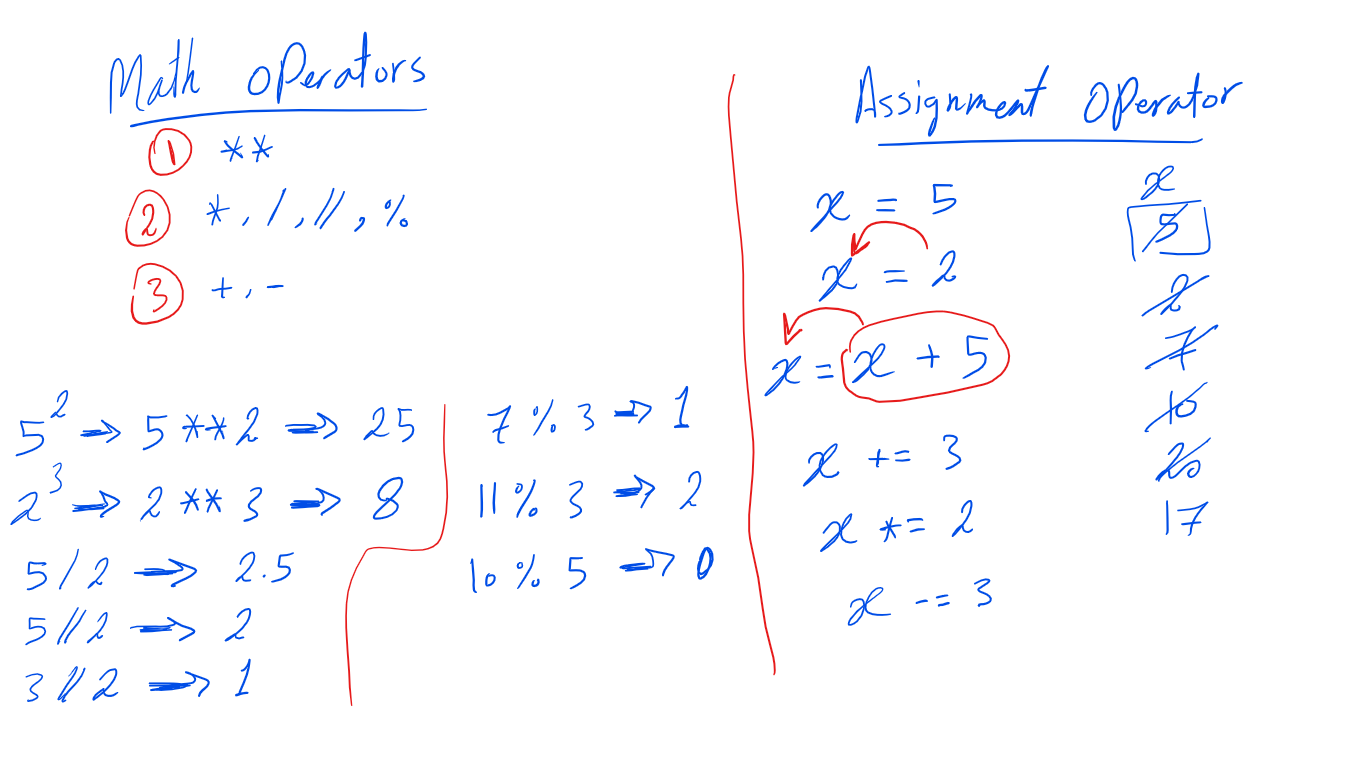 Math operators
① **
② *, /, //, %
③ +, -
5² ⇒ 5 ** 2 ⇒ 25
2³ ⇒ 2 ** 3 ⇒ 8
5 / 2 ⇒ 2.5
5 // 2 ⇒ 2
3 // 2 ⇒ 1
7 % 3 ⇒ 1
11 % 3 ⇒ 2
10 % 5 ⇒ 0
Assignment operator
x = 5
x = 2
x = x + 5
x += 3
x *= 2
x -= 3
x
5
2
7
10
20
17